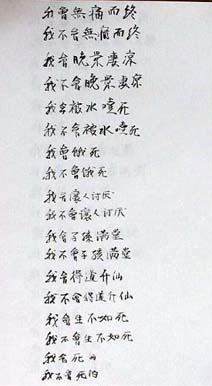 我會無痛而终
我不會無痛而终
我會晚景凄凉
我不會晚景凄凉
我会被水噎死
我不会被水噎死
我會餓死
我不會餓死
我会讓人讨厌
我不會讓人讨厌
我會子孫满堂
我不會子孫满堂
我會得道升仙
我不會得道升仙
我會生不如死
我不會生不如死
我會死的
我不會死的